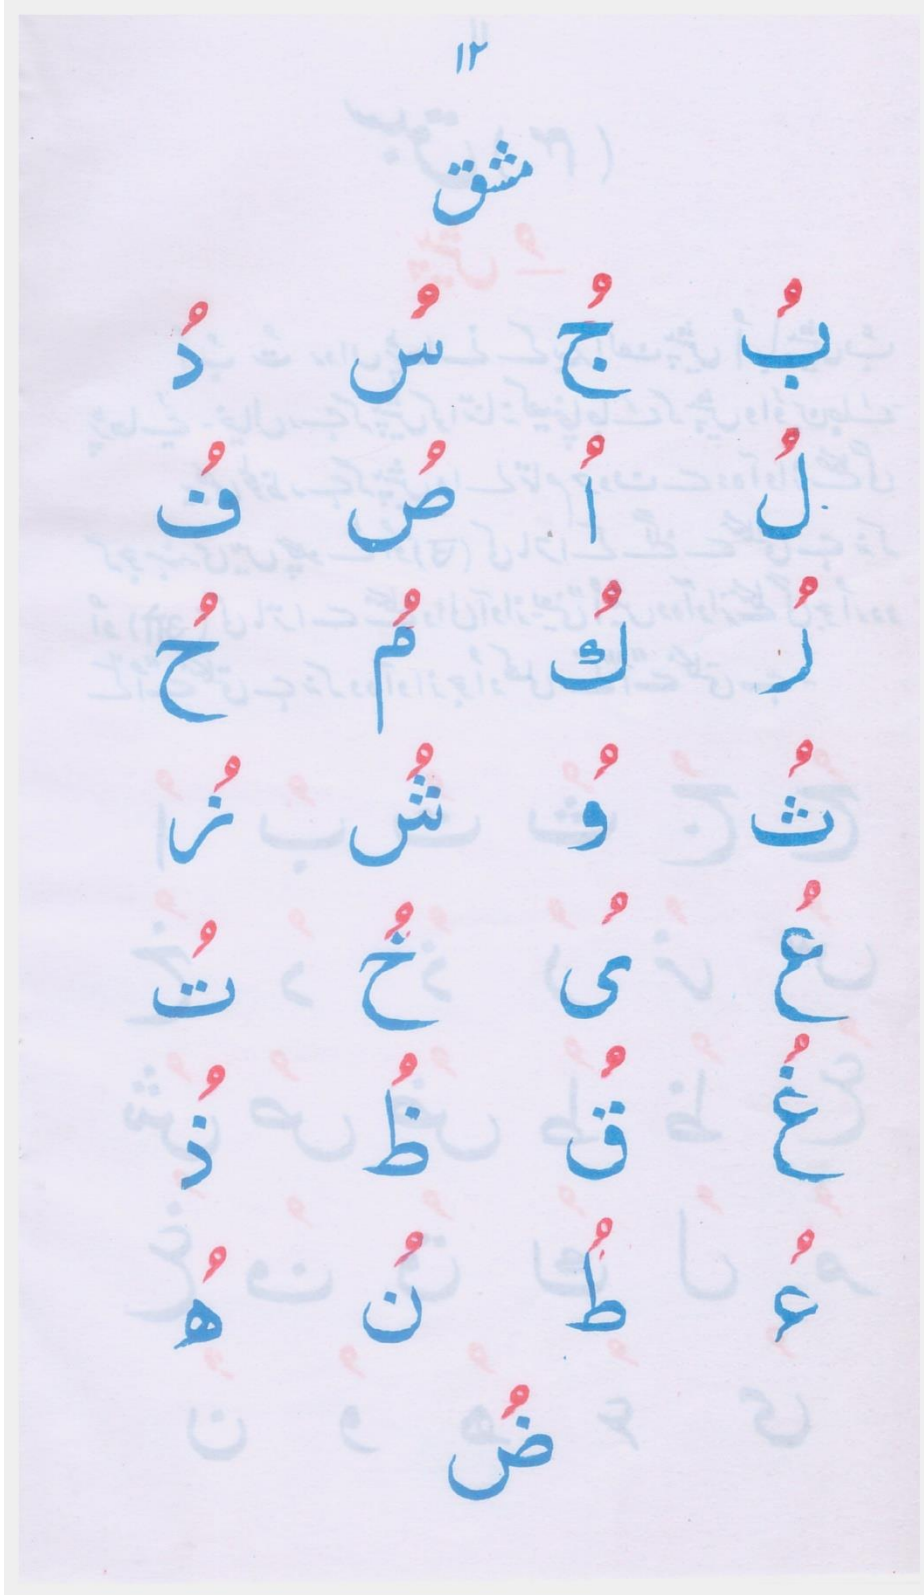 ۱۲
مشق
بُ جُ سُ دُ
لُ اُ صُ فُ
رُ كُ مُ حُ
ثُ وُ شُ زُ
عُ ىُ خُ تُ
غُ قُ ظُ ذُ
ءُ طُ نُ هُ
ضُ